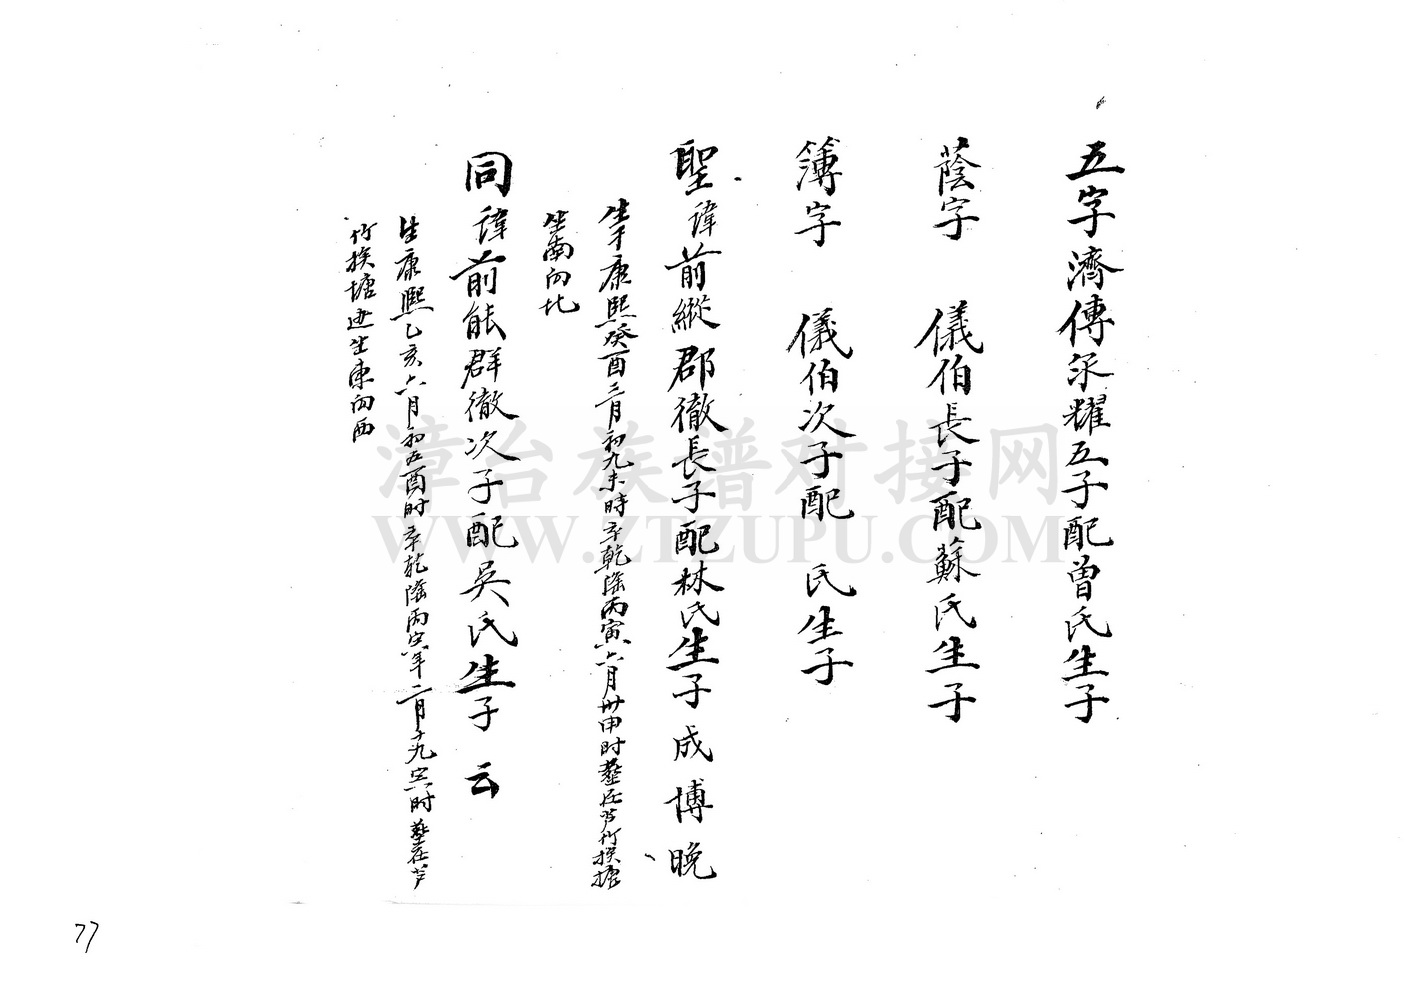 五字濟傳永耀五子配曾氏生子
蔭字 儀伯長子配蘇氏生子
簿字 儀伯次子配 氏生子
聖諱前縱郡徹長子配林氏生子成博晚
生于康熙癸酉三月初九未時卒乾隆丙寅六月卅申时塟在芦竹挨塘
坐南向北
同諱前能群徹次子配吳氏生子云
生康熙乙亥六月初五酉时卒乾隆丙寅年二月十九寅时塟在芦
竹挨塘 坐東向西
漳台族谱对接网
WWW.ZTZUPU.COM
77